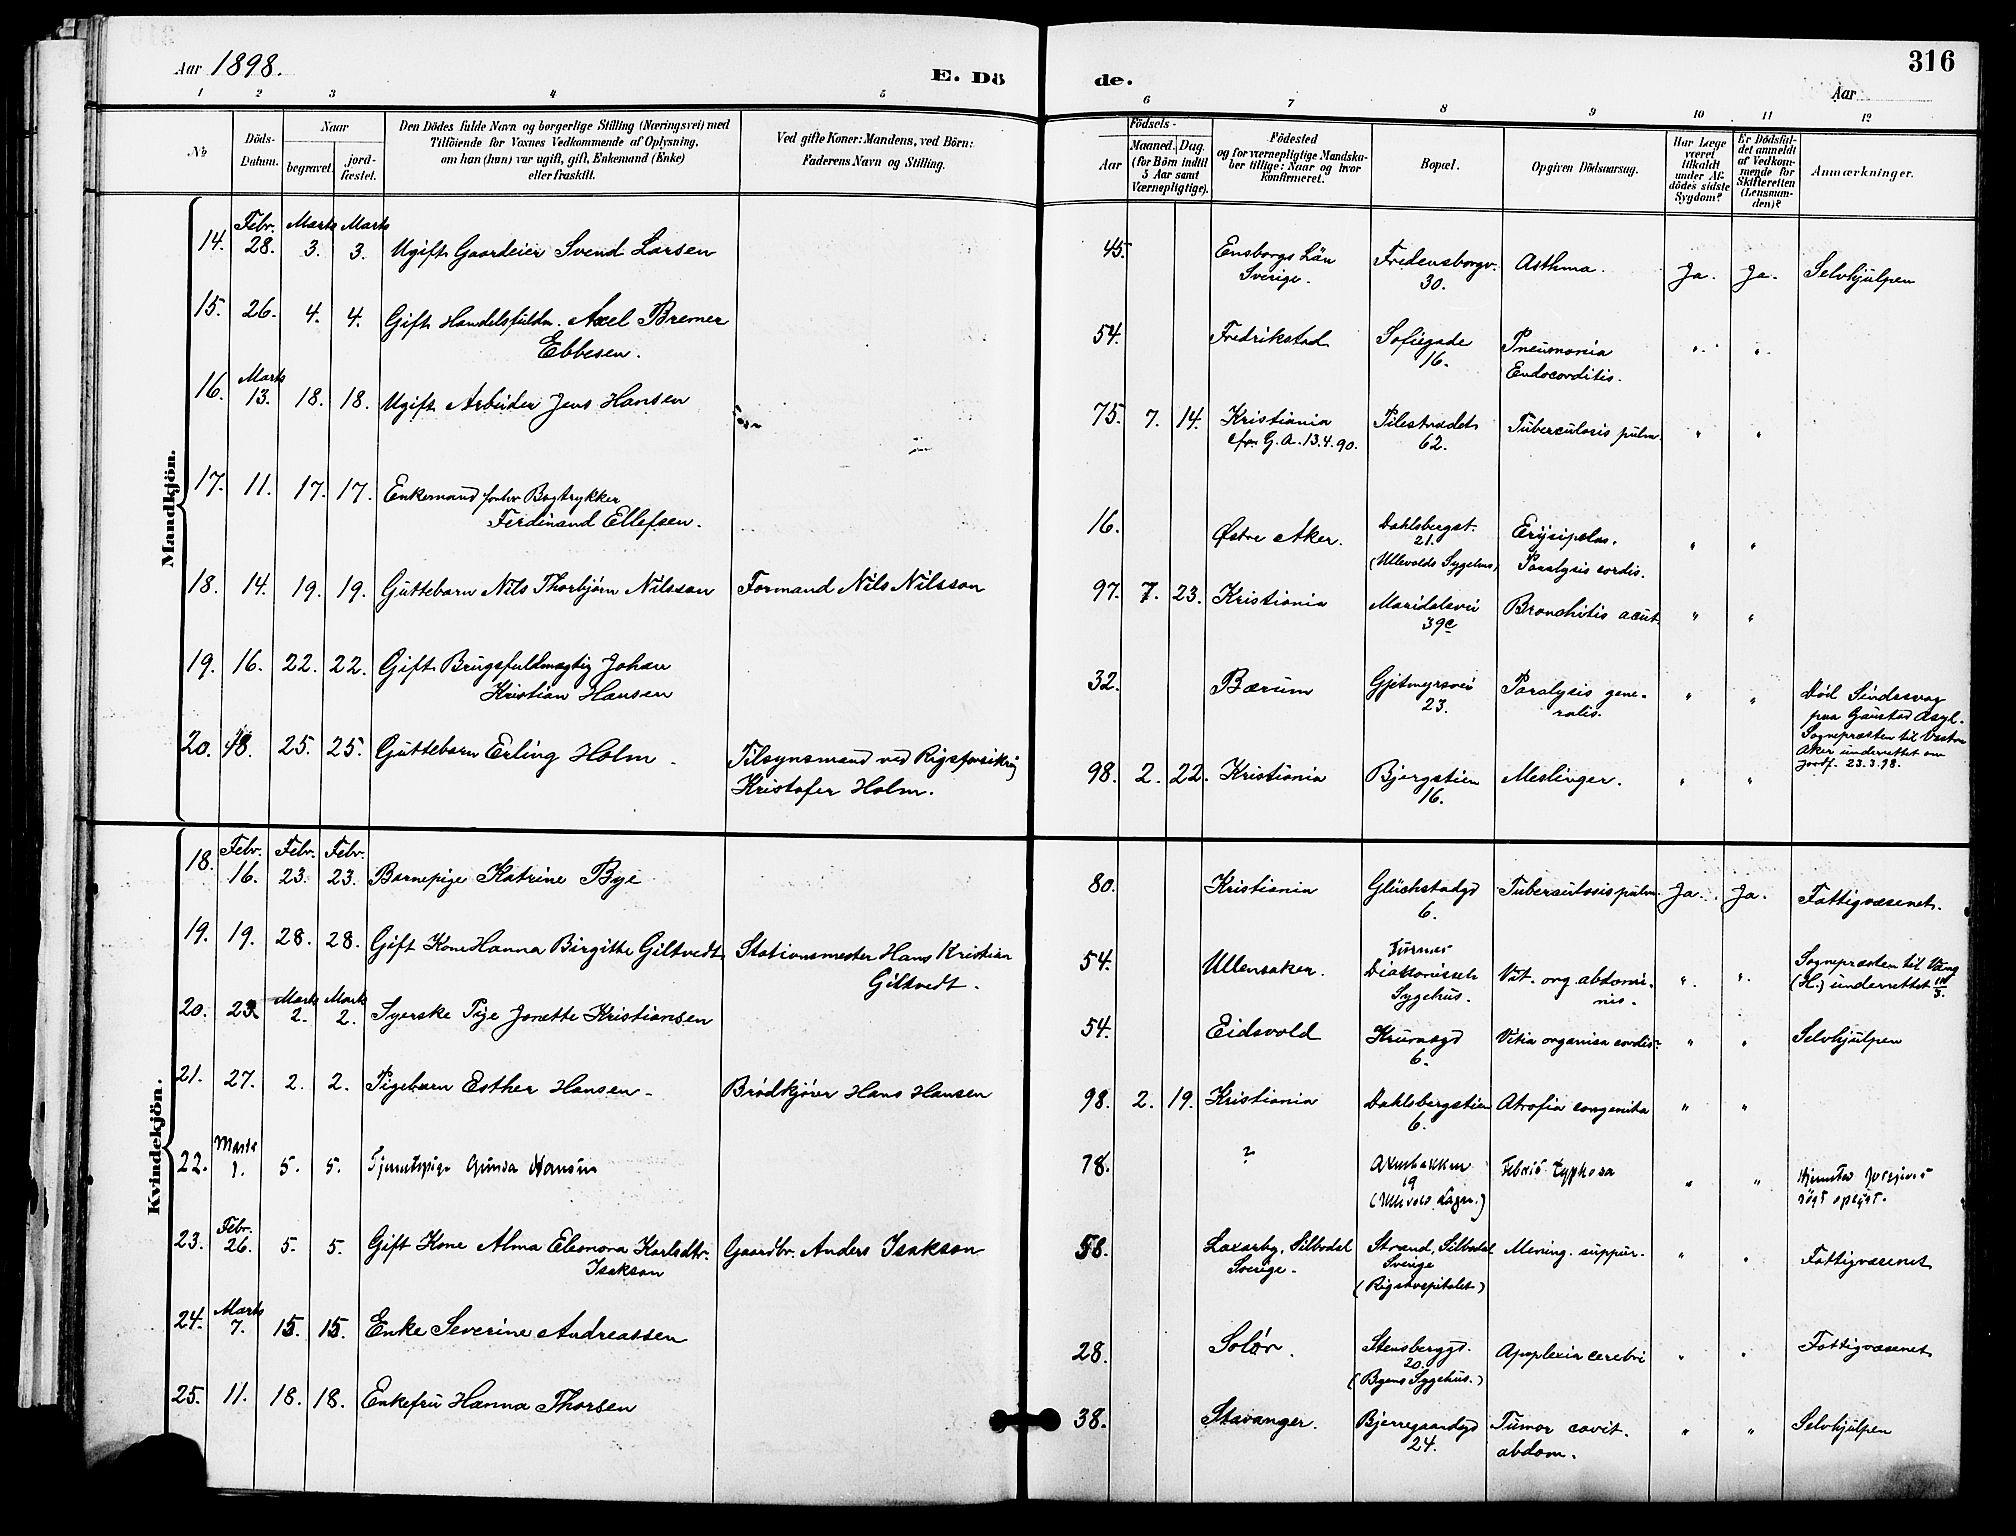 Aar 1898.
E. Dö
de.
316
Aar
1 2 3 4 5 6 7 8 9 10 11 12
No
Döds-Datum.
Naar
begravet.
jord-fæstet.
Den Dödes fulde Navn og borgerlige Stilling (Næringsvei) med
Tilföiende for Voxnes Vedkommende af Oplysning,
om han (hun) var ugift, gift, Enkemand (Enke)
eller fraskilt.
Ved gifte Koner: Mandens, ved Börn:
Faderens Navn og Stilling.
Födsels-
Aar
Maaned. Dag.
(for Börn indtil
5 Aar samt
Værnepligtige).
Födested
og for værnepligtige Mandska-
ber tillige: Naar og hvor
konfirmeret.
Bopæl.
Opgiven Dödsaarsag.
Har Læge
været
tilkaldt
under Af-
dödes sidste
Sygdom?
Er Dödsfal-
det anmeldt
af Vedkom-
mende for
Skifteretten
(Lensman-
den)?
Anmærkninger.
Mandkjön.
14. Febr. 28. Marts 3. Marts 3. Ugift Gaardeier Svend Larsen 45. Ensborgs Län Sverige. Fredensborgv. 30. Asthma. Ja. Ja. Selvhjulpen
15. 26. 4. 4. Gift Handelsfuldm. Axel Bremer Ebbesen. 54. Fredrikstad Sofiegade 16. Pneumonia Endocorditis. " "
16. Marts 13. 18. 18. Ugift Arbeider Jens Hansen 75. 7. 14. Kristiania cfr. G. A. 13.4.90. Pilestrædet 62. Tuberculosis pulm. " "
17. 11. 17. 17. Enkemand forhv Bogtrykker Ferdinand Ellefsen. 16. Østre Aker. Dahlsbergst. 21. (Ullevolds Sygehus) Erysipelas. Paralysis cordis. " "
18. 14. 19. 19. Guttebarn Nils Thorbjørn Nilsson Formand Nils Nilsson 97. 7. 23. Kristiania Maridalsvei 39c Bronchitis acut. " "
19. 16. 22. 22. Gift Brugsfuldmægtig Johan Kristian Hansen 32. Bærum Gjetmyrsvei 23. Paralysis generalis. " " Død Sindssvag paa Gaustad Asyl. Sognepræsten til Vestre Aker underrettet om Jordf. 23.3.98.
20. 18. 25. 25. Guttebarn Erling Holm Tilsynsmand ved Rigsforsikring Kristofer Holm. 98. 2. 22. Kristiania Bjergstien 16. Meslinger. " "
Kvindekjön.
18. Febr. 16. Febr. 23. Febr. 23. Barnepige Katrine Bye 80. Kristiania Glückstadgd 6. Tuberculosis pulm. Ja. Ja. Fattigvæsenet.
19. 19. 28. 28. Gift Kone Hanna Birgitte Giltvedt Stationsmester Hans Kristian Giltvedt. 54. Ullensaker. Diakonisseh Sygehus. Vit. org. abdominis. " " Sognepræsten til Vang (H.) underrettet
20. 23. Marts 2. Marts 2. Syerske Pige Jonette Kristiansen 54. Eidsvold Krumsgd 6. Vitia organica cordis. " " Selvhjulpen
21. 27. 2. 2. Pigebarn Esther Hansen Brödkjører Hans Hansen 98. 2. 19. Kristiania Dahlsbergstien 6. Atrofia congenita " "
22. Marts 1. 5. 5. Tjenestepige Gunda Hansen 78. ? Akersbakken 19 (Ullevold Lazar.) Febris typhosa " " Hjemsted forgjæves søgt oplyst.
23. Febr. 26. 5. 5. Gift Kone Alma Eleonora Karlsdtr. Isakson Gaardbr. Anders Isakson 58. Laxarby, Silbodal Sverige. Strand, Silbodal Sverige (Rigshospitalet) Mening. suppur. " " Fattigvæsenet
24. Marts 7. 15. 15. Enke Severine Andreassen 28. Solör. Stensberggd. 20. (Byens Sygehus.) Apoplexia cerebri " " Fattigvæsenet
25. 11. 18. 18. Enkefru Hanna Thorsen 38. Stavanger. Bjerregaardsgd 24. Tumor cavit. abdom. " " Selvhjulpen